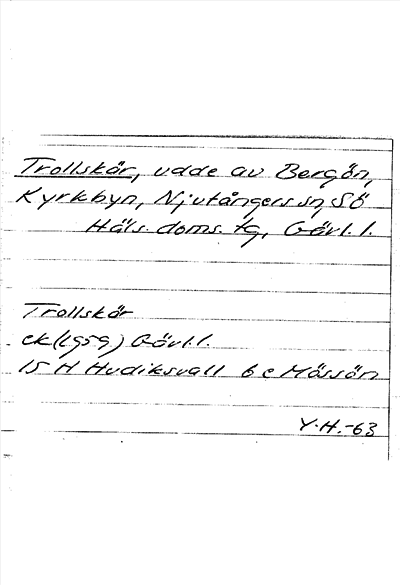 Trollskär, udde av Bergön,
Kyrkbyn, Njutångers sn, Sö
Häls. doms. tg, Gävl. l.
Trollskär
ek (1959) Gävl. l.
15 H Hudiksvall 6 c Mössön
Y.H.-63